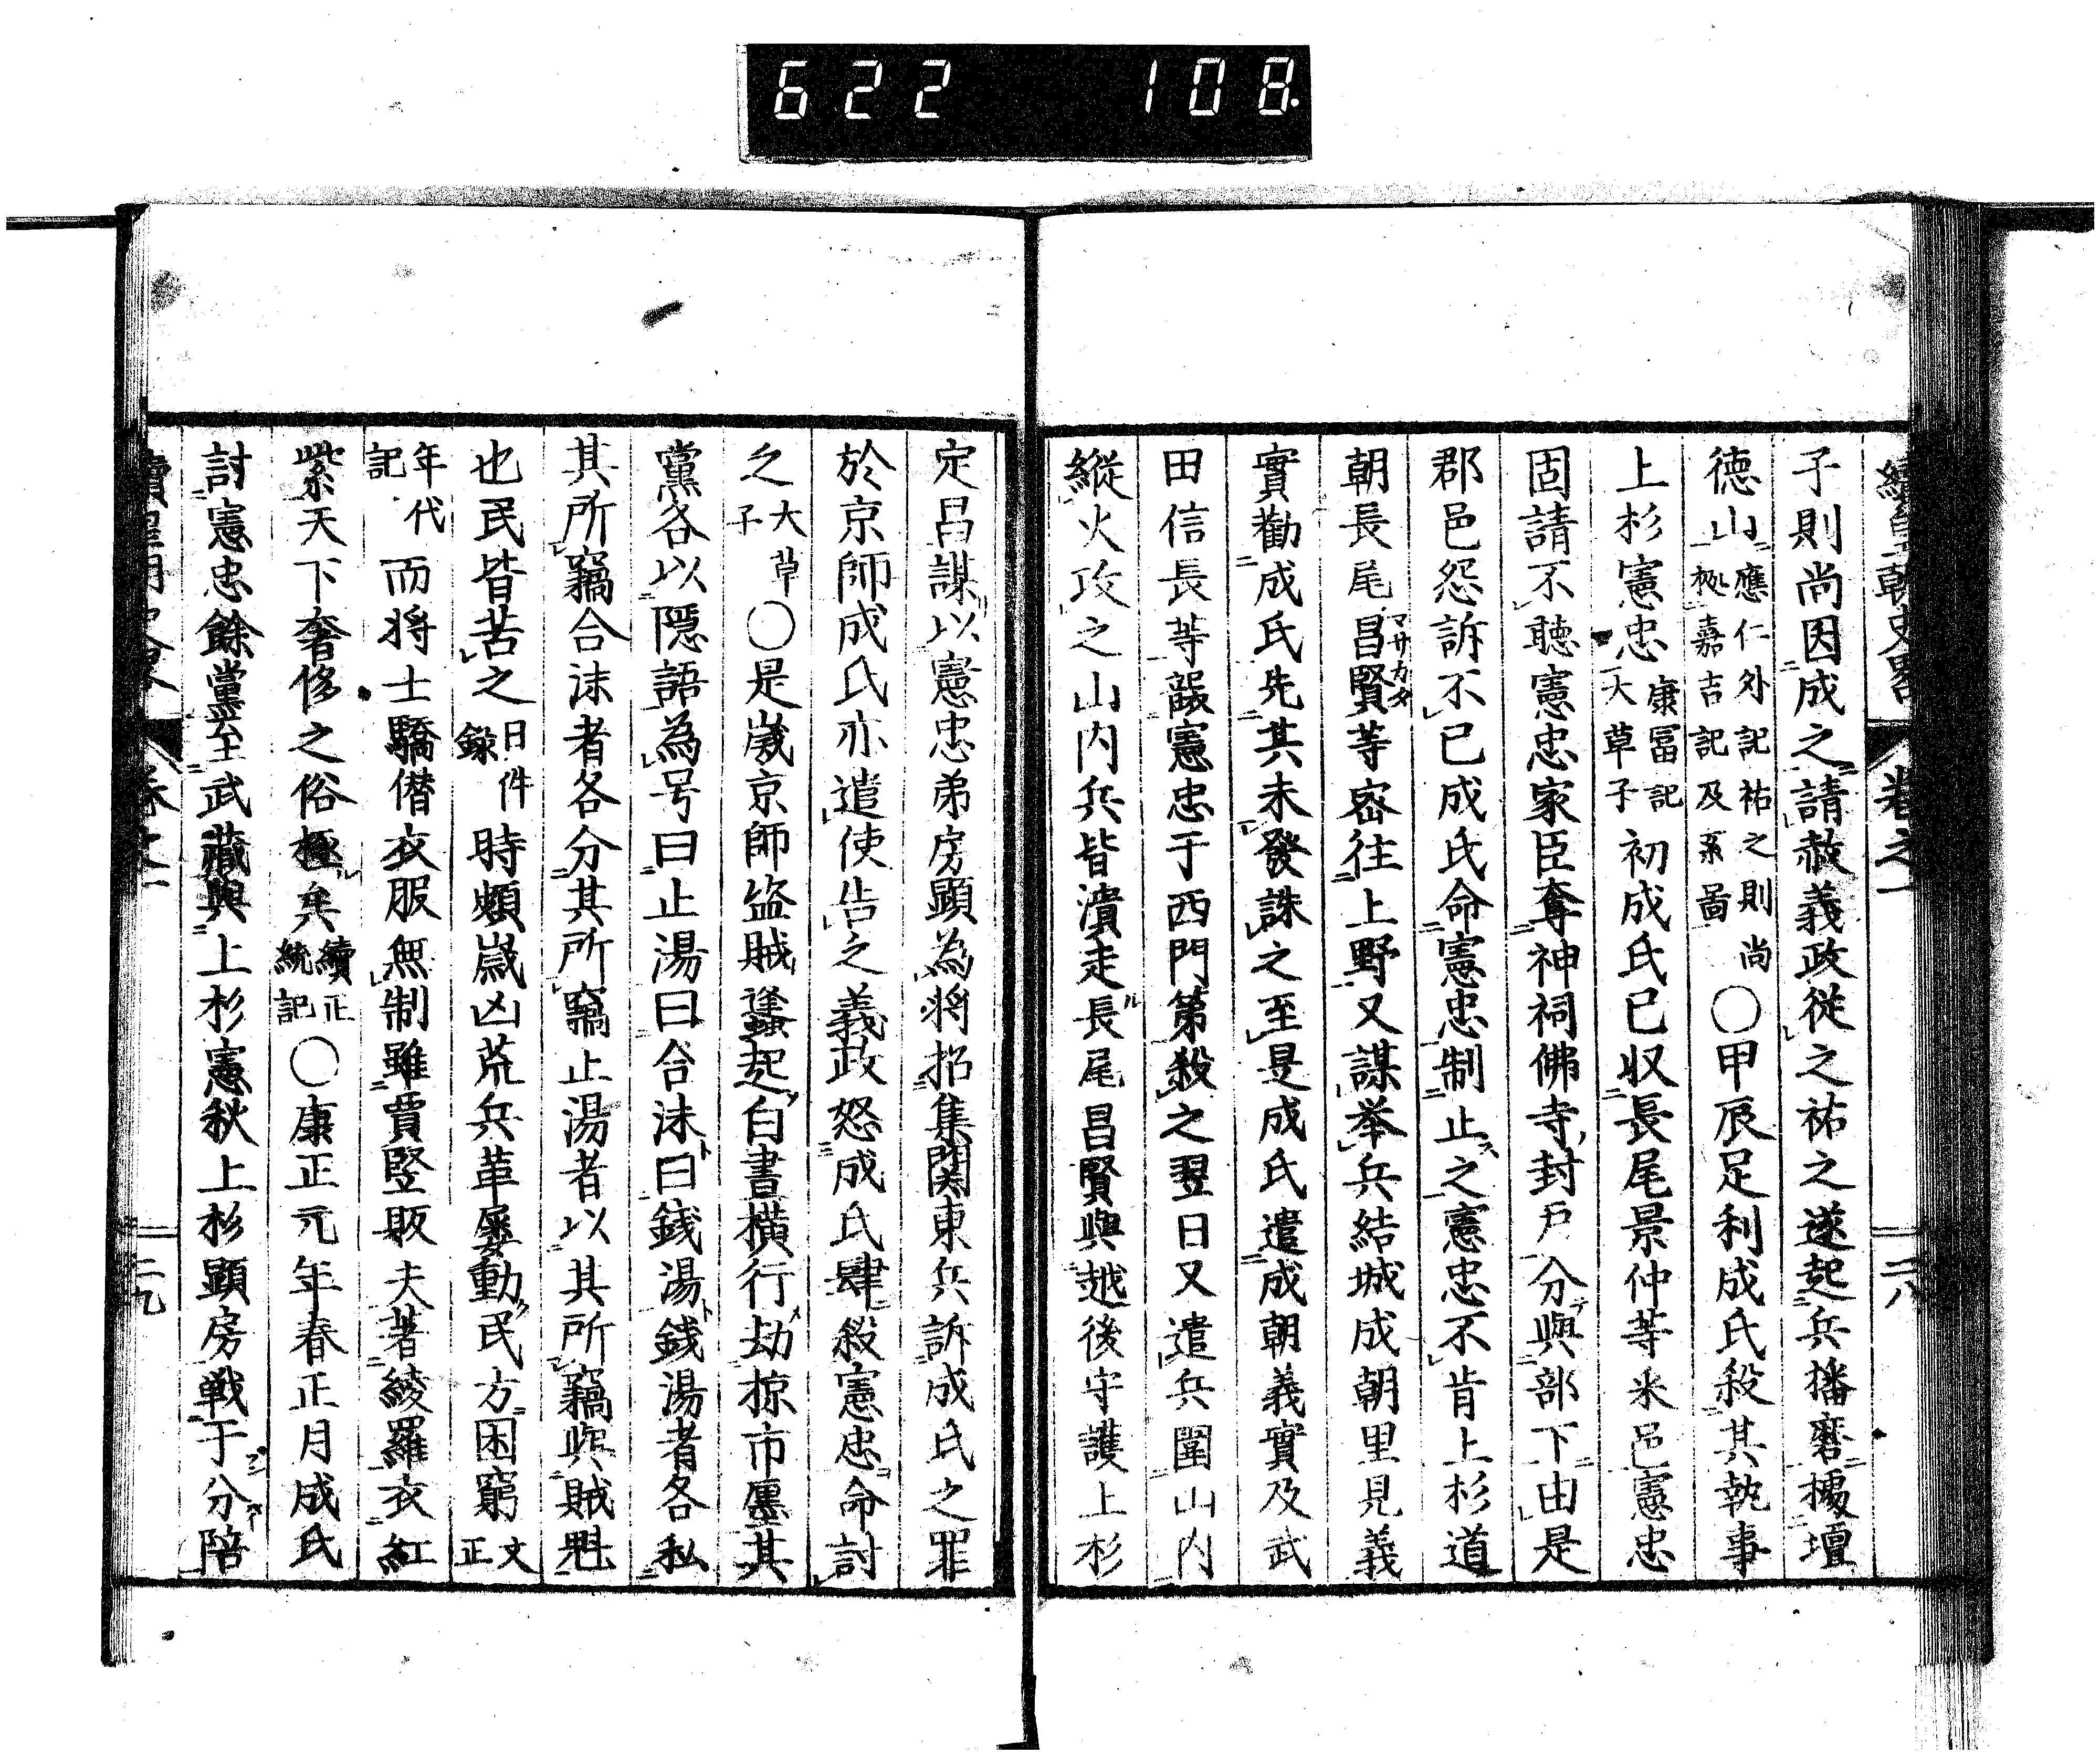 622 108
續皇朝史畧 卷之一 二八
子則尚因成之請赦義政従之祐之遂起兵播磨擾壇
德山應仁外記祐之則尚
㧞嘉吉記及系圖○甲辰足利成氏殺其執事
上杉憲忠康冨記
大草子初成氏已収長尾景仲等米邑憲忠
固請不聴憲忠家臣奪神祠佛寺封戸分與部下由是
郡邑怨訴不已成氏命憲忠制止之憲忠不肯上杉道
朝長尾昌賢マサカタ等密往上野又謀挙兵結城成朝里見義
實勸成氏先其未發誅之至是成氏遣成朝義實及武
田信長等襲憲忠于西門第殺之翌日又遣兵圍山内
縱火攻之山内兵皆潰走長尾昌賢與越後守護上杉
定昌謀以憲忠弟房顕為将招集関東兵訴成氏之罪
於京師成氏亦遣使告之義政怒成氏肆殺憲忠命討
之大草
子○是歳京師盗賊蠭起白晝横行劫掠市廛其
黨各以隱語為号曰止湯曰合沫曰銭湯銭湯者各私
其所竊合沫者各分其所竊止湯者以其所竊與賊魁
也民皆苦之日件
録時頻歳凶荒兵革屡動民方困窮文正
年代
記而将士驕僣衣服無制雖賈竪販夫著綾羅衣紅
紫天下奢侈之俗極矣續正
統記○康正元年春正月成氏
討憲忠餘黨至武藏與上杉憲秋上杉顕房戦于分陪
續皇朝史畧 卷之一 二九